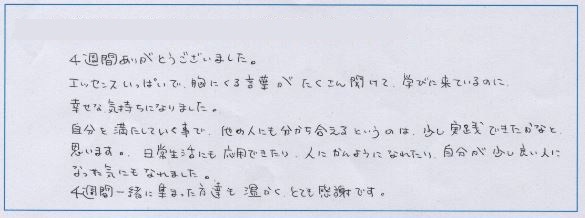 4週間ありがとうございました。
エッセンスいっぱいで、胸にくる言葉がたくさん聞けて、学びに来ているのに、
幸せな気持ちになりました。
自分を満たしていく事で、他の人にも分かち合えるというのは、少し実践できたかなと、
思います。、日常生活にも応用できたり、人にかんようになれたり、自分が少し良い人に
なった気にもなれました。
4週間一緒に集まった方達も温かく、とても感謝です。